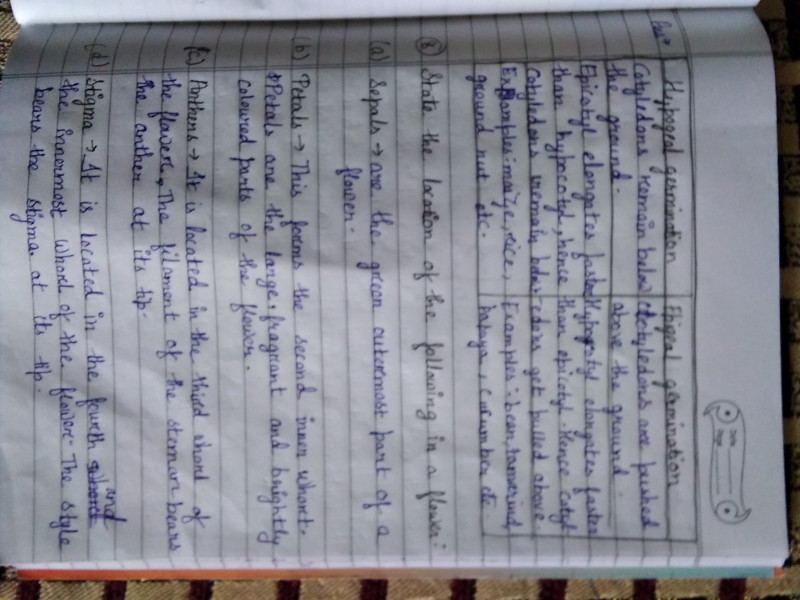 Ans→
Hypogeal germination | Epigeal germination
Cotyledons remain below | Cotyledons are pushed
the ground. | above the ground.
Epicotyl elongates faster | Hypocotyl elongates faster
than hypocotyl, hence | than epicotyl. Hence cotyl-
cotyledons remain below | edons get pulled above.
Examples:- maize, rice, | Examples:- bean, tamarind,
ground nut etc. | papaya, cucumber etc.
(8) State the location of the following in a flower:
(a) Sepals → are the green outermost part of a
flower.
(b) Petals → This forms the second inner whorl.
Petals are the large, fragrant and brightly
coloured parts of the flower.
(c) Anthers → It is located in the third whorl of
the flower. The filament of the stemen bears
the anther at its tip.
(d) Stigma → It is located in the fourth and
the innermost whorl of the flower. The style
bears the stigma at its tip.